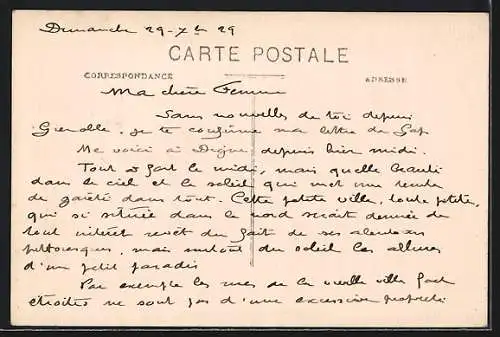 Dimanche 29-7bre 29
CARTE POSTALE
CORRESPONDANCE
ADRESSE
Ma chère femme
Sans nouvelles de toi depuis
Grenoble, je te confirme ma lettre de Gap.
Me voici à Digne depuis hier midi.
Tout à fait le midi, mais quelle beauté
dans le ciel et le soleil qui met une
de gaieté dans tout. Cette petite ville, toute petite,
qui si située dans le nord serait dénuée de
tout intérêt revêt du fait de ses alentours
pittoresques, mais surtout du soleil les allures
d'un petit paradis
Par exemple les rues de la vieille ville fort
étroites ne sont pas d'une excessive propreté